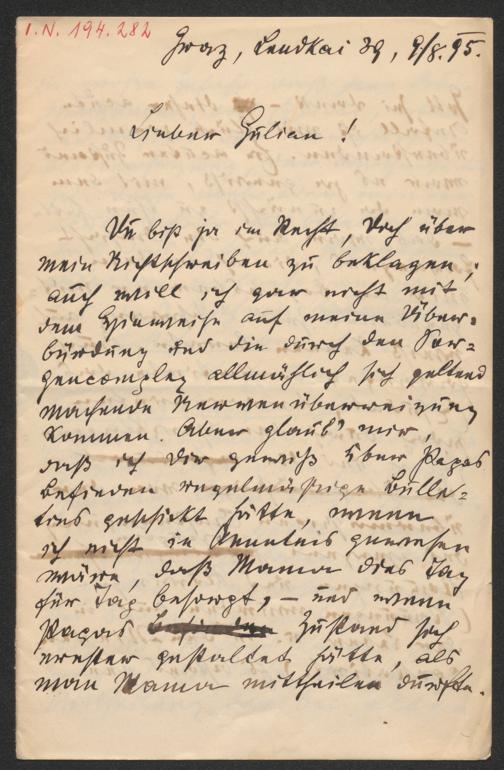 I.N. 194.282
Graz, Lendkai 39, 9/8.95.
Lieber Julian!
Du bist ja im Recht, Dich über
mein Nichtschreiben zu beklagen,
auch will ich gar nicht mit
dem Hinweise auf meine Über-
bürdung und die durch den Sor-
gencomplex allmählich sich geltend
machende Nervenüberreizung
kommen. Aber glaub' mir,
daß ich Dir gewiß über Papas
Befinden regelmäßige Bulle-
tins geschickt hätte, wenn
ich nicht in Kenntnis gewesen
wäre, daß Mama dies Tag
für Tag besorgt, – und wenn
Papas Zustand sich
ernster gestaltet hätte, als
man Mama mittheilen durfte.